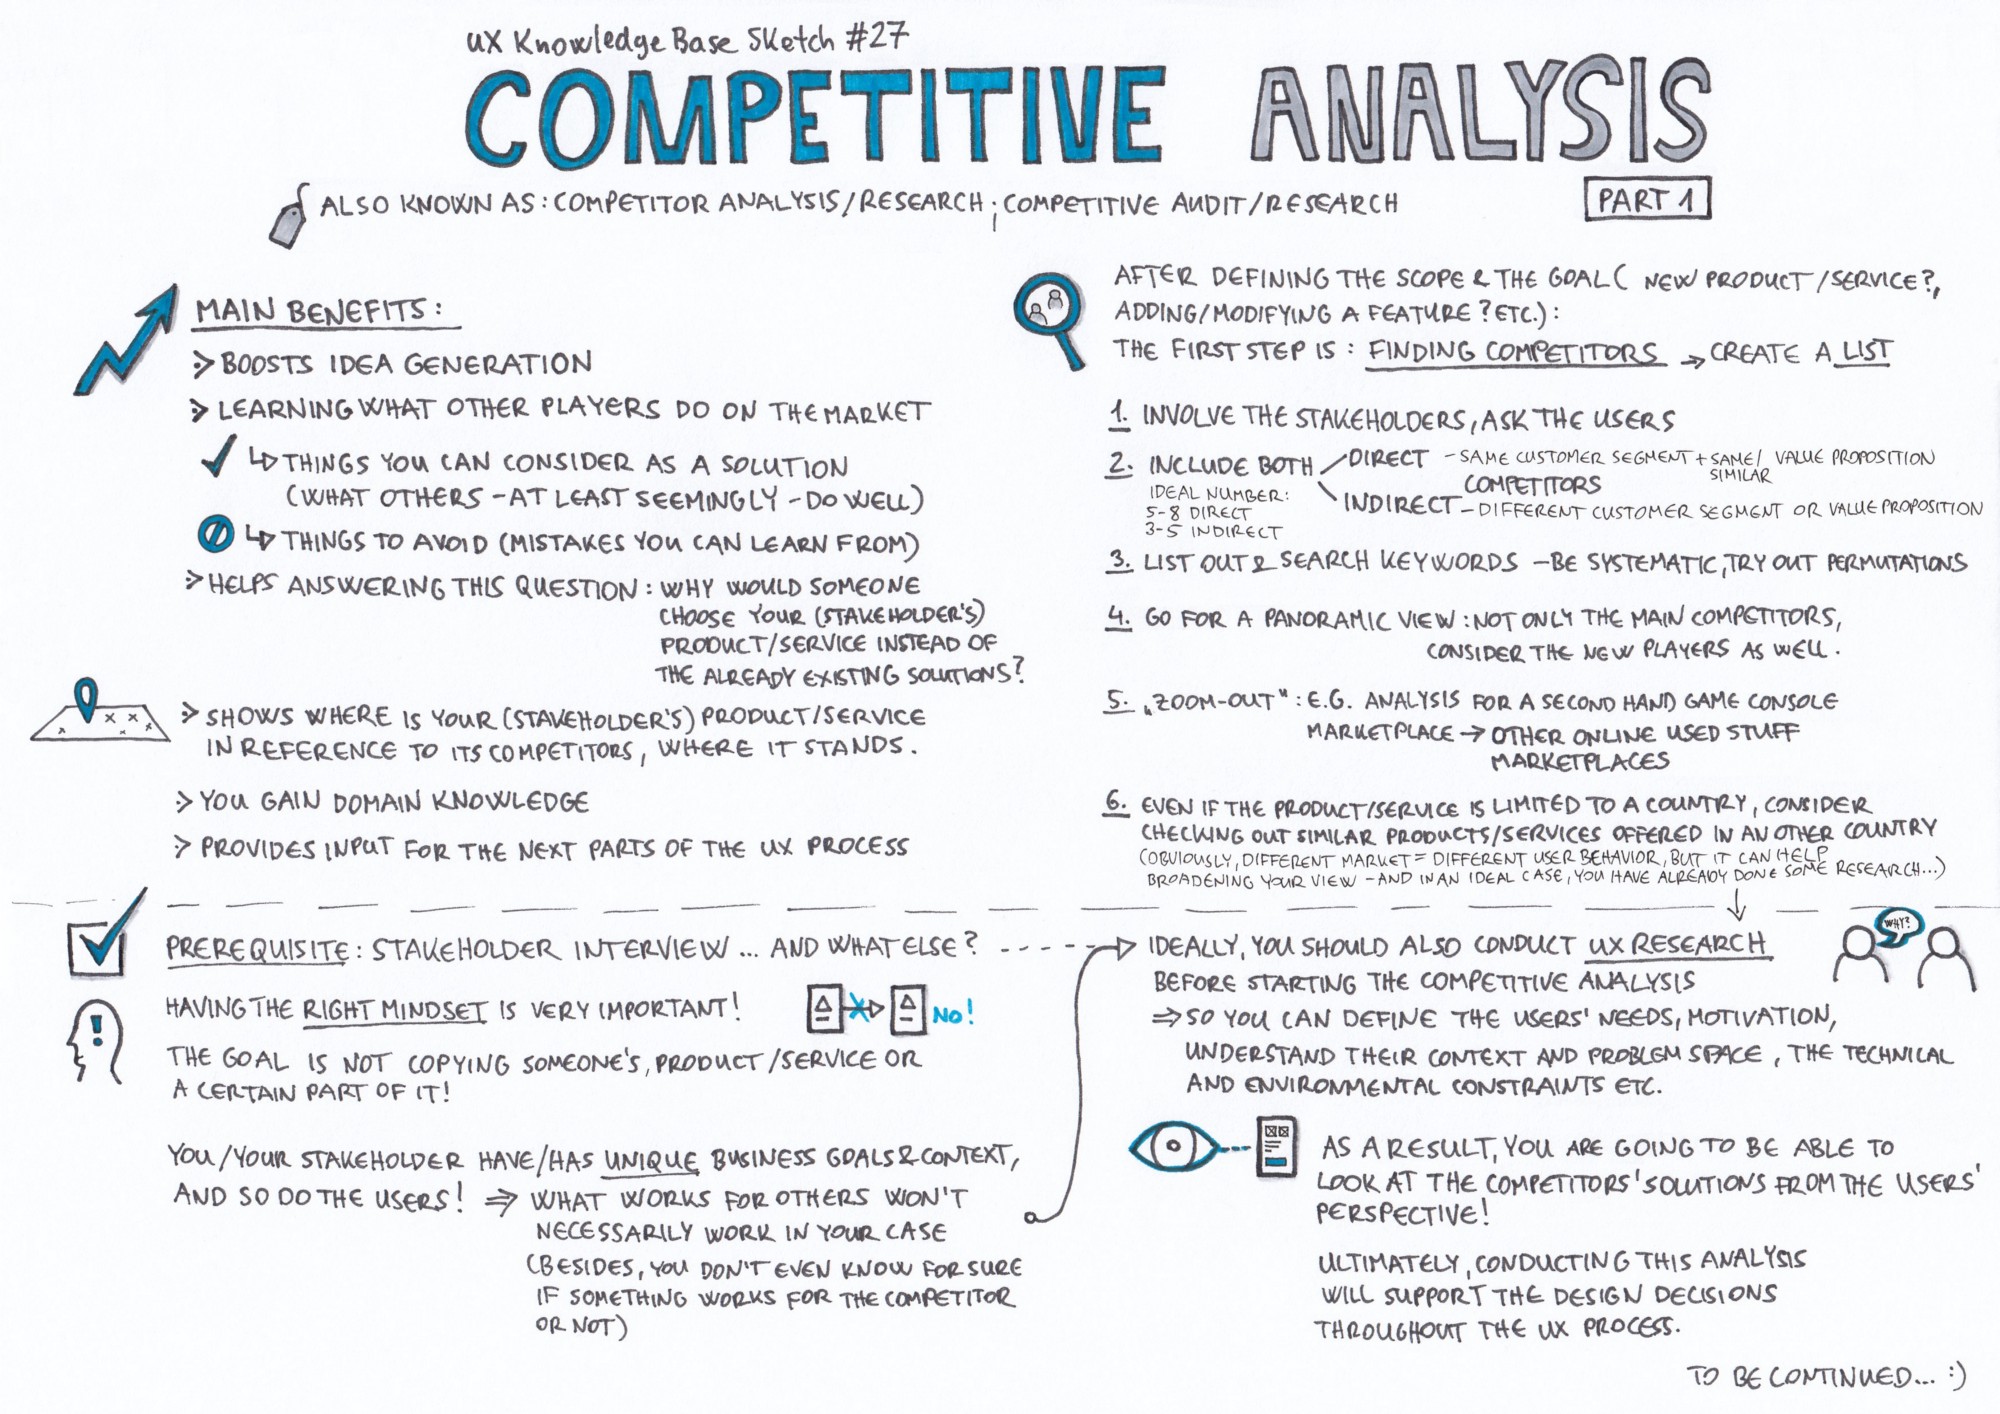 UX Knowledge Base Sketch #27
COMPETITIVE ANALYSIS
ALSO KNOWN AS: COMPETITOR ANALYSIS/RESEARCH; COMPETITIVE AUDIT/RESEARCH
PART 1
MAIN BENEFITS:
> BOOSTS IDEA GENERATION
> LEARNING WHAT OTHER PLAYERS DO ON THE MARKET
↳ THINGS YOU CAN CONSIDER AS A SOLUTION
(WHAT OTHERS - AT LEAST SEEMINGLY - DO WELL)
↳ THINGS TO AVOID (MISTAKES YOU CAN LEARN FROM)
> HELPS ANSWERING THIS QUESTION: WHY WOULD SOMEONE
CHOOSE YOUR (STAKEHOLDER'S)
PRODUCT/SERVICE INSTEAD OF
THE ALREADY EXISTING SOLUTIONS?
> SHOWS WHERE IS YOUR (STAKEHOLDER'S) PRODUCT/SERVICE
IN REFERENCE TO ITS COMPETITORS, WHERE IT STANDS.
> YOU GAIN DOMAIN KNOWLEDGE
> PROVIDES INPUT FOR THE NEXT PARTS OF THE UX PROCESS
AFTER DEFINING THE SCOPE & THE GOAL ( NEW PRODUCT/SERVICE?,
ADDING/MODIFYING A FEATURE? ETC.):
THE FIRST STEP IS: FINDING COMPETITORS → CREATE A LIST
1. INVOLVE THE STAKEHOLDERS, ASK THE USERS
2. INCLUDE BOTH DIRECT - SAME CUSTOMER SEGMENT + SAME/ VALUE PROPOSITION
SIMILAR
COMPETITORS
INDIRECT - DIFFERENT CUSTOMER SEGMENT OR VALUE PROPOSITION
IDEAL NUMBER:
5-8 DIRECT
3-5 INDIRECT
3. LIST OUT & SEARCH KEYWORDS - BE SYSTEMATIC, TRY OUT PERMUTATIONS
4. GO FOR A PANORAMIC VIEW: NOT ONLY THE MAIN COMPETITORS,
CONSIDER THE NEW PLAYERS AS WELL.
5. „ZOOM-OUT": E.G. ANALYSIS FOR A SECOND HAND GAME CONSOLE
MARKETPLACE → OTHER ONLINE USED STUFF
MARKETPLACES
6. EVEN IF THE PRODUCT/SERVICE IS LIMITED TO A COUNTRY, CONSIDER
CHECKING OUT SIMILAR PRODUCTS/SERVICES OFFERED IN AN OTHER COUNTRY
(OBVIOUSLY, DIFFERENT MARKET = DIFFERENT USER BEHAVIOR, BUT IT CAN HELP
BROADENING YOUR VIEW - AND IN AN IDEAL CASE, YOU HAVE ALREADY DONE SOME RESEARCH...)
PREREQUISITE: STAKEHOLDER INTERVIEW ... AND WHAT ELSE?
HAVING THE RIGHT MINDSET IS VERY IMPORTANT!
NO!
THE GOAL IS NOT COPYING SOMEONE'S, PRODUCT/SERVICE OR
A CERTAIN PART OF IT!
YOU/YOUR STAKEHOLDER HAVE/HAS UNIQUE BUSINESS GOALS & CONTEXT,
AND SO DO THE USERS! ⇒ WHAT WORKS FOR OTHERS WON'T
NECESSARILY WORK IN YOUR CASE
(BESIDES, YOU DON'T EVEN KNOW FOR SURE
IF SOMETHING WORKS FOR THE COMPETITOR
OR NOT)
IDEALLY, YOU SHOULD ALSO CONDUCT UX RESEARCH
WHY?
BEFORE STARTING THE COMPETITIVE ANALYSIS
⇒ SO YOU CAN DEFINE THE USERS' NEEDS, MOTIVATION,
UNDERSTAND THEIR CONTEXT AND PROBLEM SPACE, THE TECHNICAL
AND ENVIRONMENTAL CONSTRAINTS ETC.
AS A RESULT, YOU ARE GOING TO BE ABLE TO
LOOK AT THE COMPETITORS' SOLUTIONS FROM THE USERS'
PERSPECTIVE!
ULTIMATELY, CONDUCTING THIS ANALYSIS
WILL SUPPORT THE DESIGN DECISIONS
THROUGHOUT THE UX PROCESS.
TO BE CONTINUED... :)